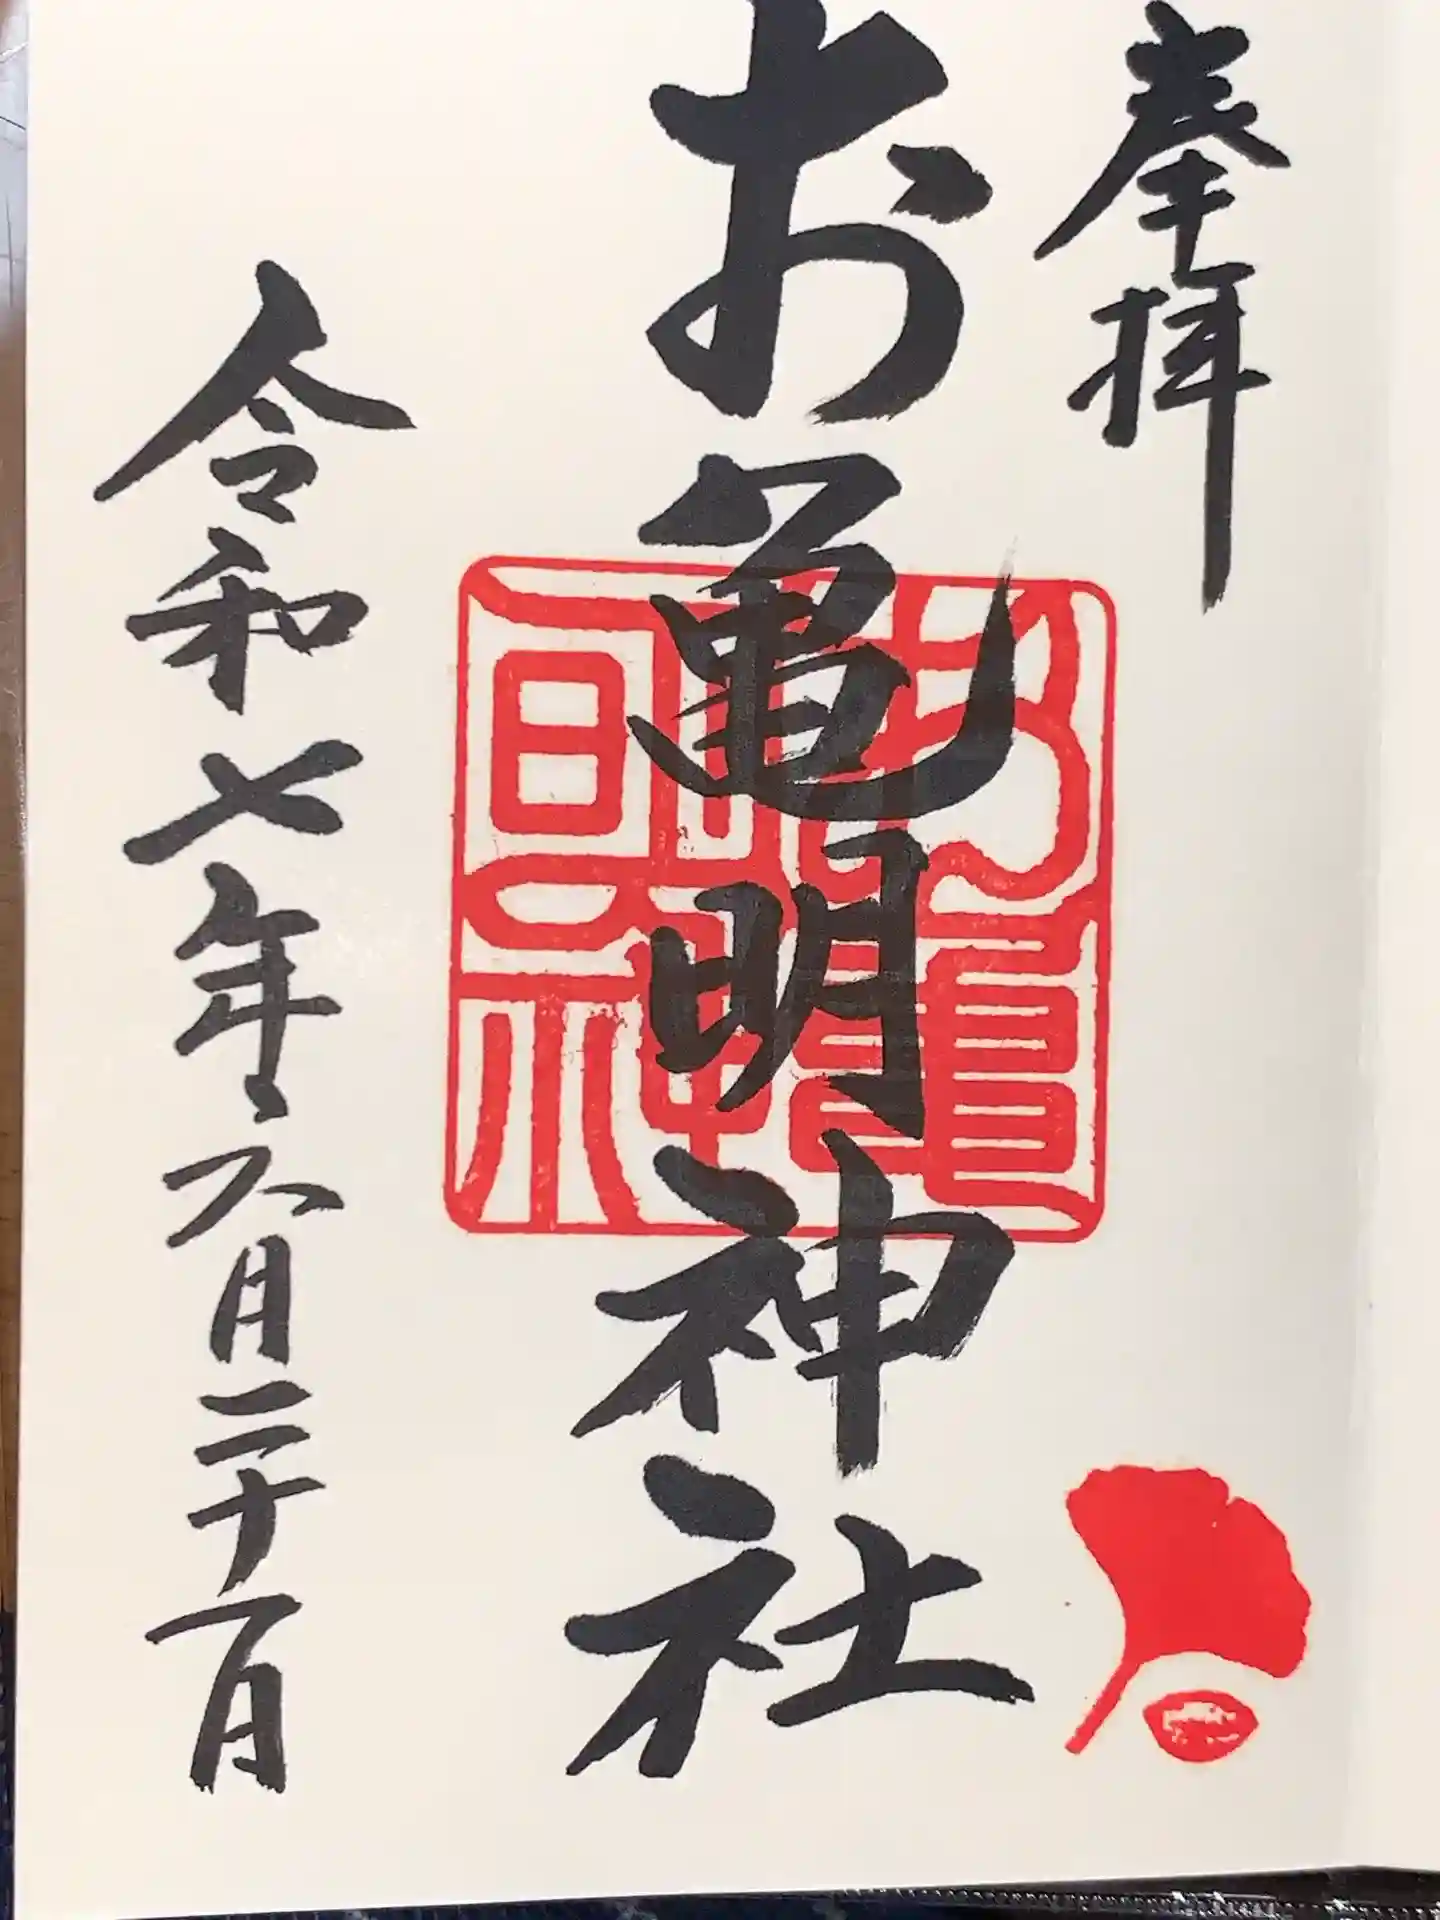 奉拝
お亀明神社
令和七年六月二十一日